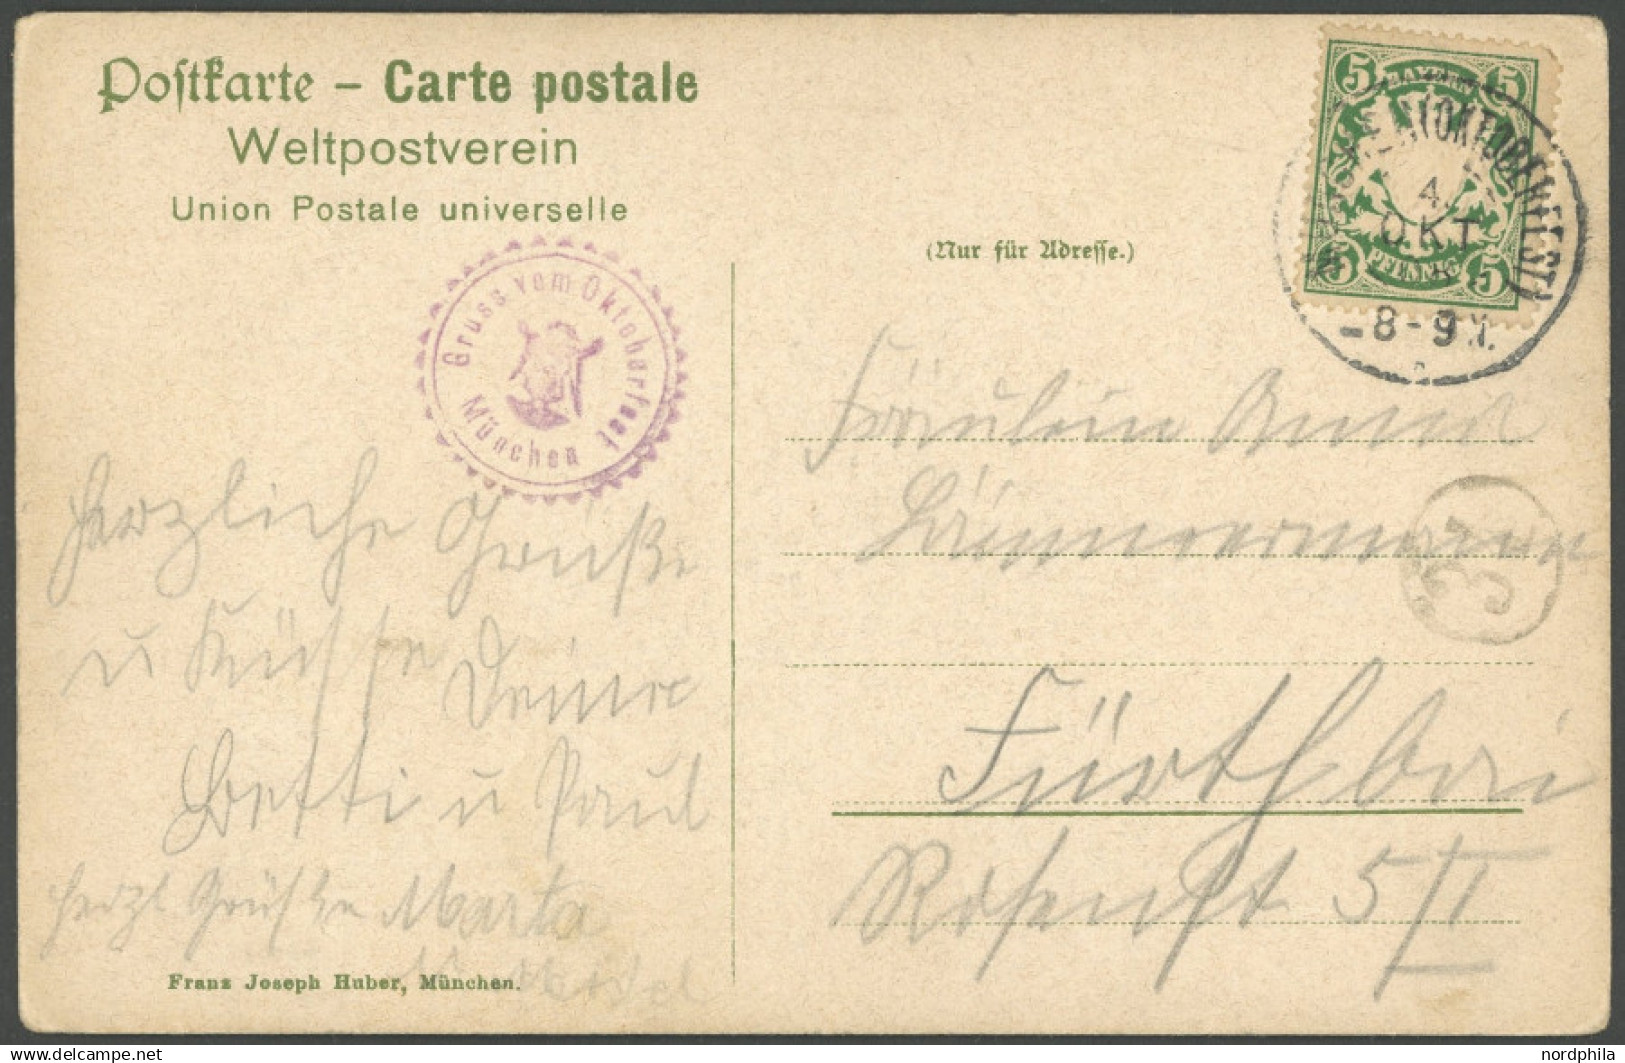 Postkarte – Carte postale
Weltpostverein
Union Postale universelle
(Nur für Adresse.)
Gruss vom Oktoberfest
München
5 5
BAYERN
PFENNIG
5 5
(OKTOBERFEST)
4.
OKT
8-9 N.
37
Herzliche Grüße
u Küsse Deine
Betti u Paul
herzl Grüße Marta
Fräulein
Fürth Bai
5/II
Franz Joseph Huber, München.
nordphila